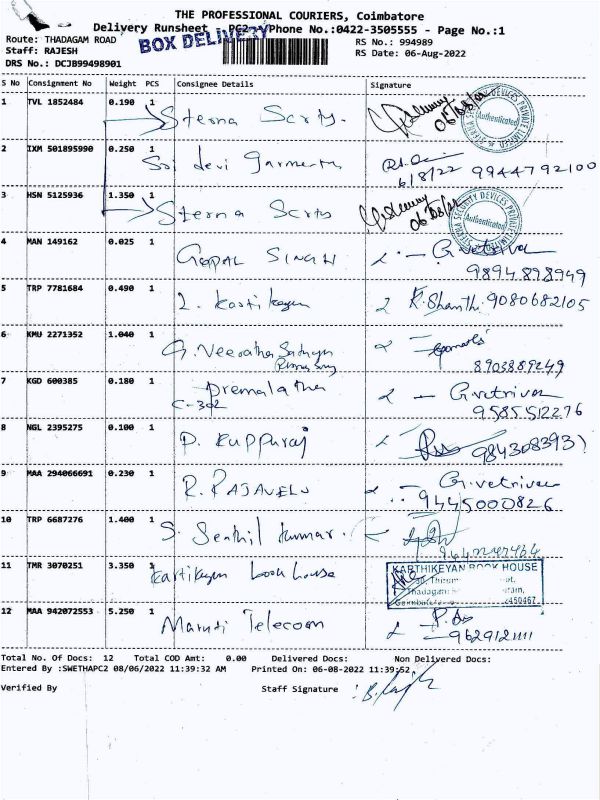 THE PROFESSIONAL COURIERS, Coimbatore
Delivery Runsheet - PC2 - Phone No.:0422-3505555 - Page No.:1
Route: THADAGAM ROAD
BOX DELIVERY
RS No.: 994989
Staff: RAJESH
RS Date: 06-Aug-2022
DRS No.: DCJB99498901
S No Consignment No Weight PCS Consignee Details Signature
1 TVL 1852484 0.190 1 Sterna Scrts. 06/08/22
Authenticated
2 IXM 501895990 0.250 1 Sri devi Garments 6/8/22 9944792100
3 HSN 5125936 1.350 1 Sterna Scrts 06/08/22
SECURITY DEVICES PRIVATE LIMITED
Authenticated
4 MAN 149162 0.025 1 GOPAL SINGH G.vetrivel
9894898949
5 TRP 7781684 0.490 1 L. Kartikeyan K.Shanthi 9080682105
6 KMU 2271352 1.040 1 G. Veeratha
8903889249
7 KGD 600385 0.180 1 Premalatha G.vetrivel
C-302 9585512276
8 NGL 2395275 0.100 1 P. KUPPURAJ 9843083931
9 MAA 294066691 0.230 1 R. RAJAVELU G.vetrivel
9445000826
10 TRP 6687276 1.400 1 S. Senthil Kumar.
11 TMR 3070251 3.350 1 Kartikeyan book house
KARTHIKEYAN BOOK HOUSE
12 MAA 942072553 5.250 1 Maruti Telecom
9629121111
Total No. Of Docs: 12 Total COD Amt: 0.00 Delivered Docs: Non Delivered Docs:
Entered By :SWETHAPC2 08/06/2022 11:39:32 AM Printed On: 06-08-2022 11:39:52
Verified By Staff Signature :